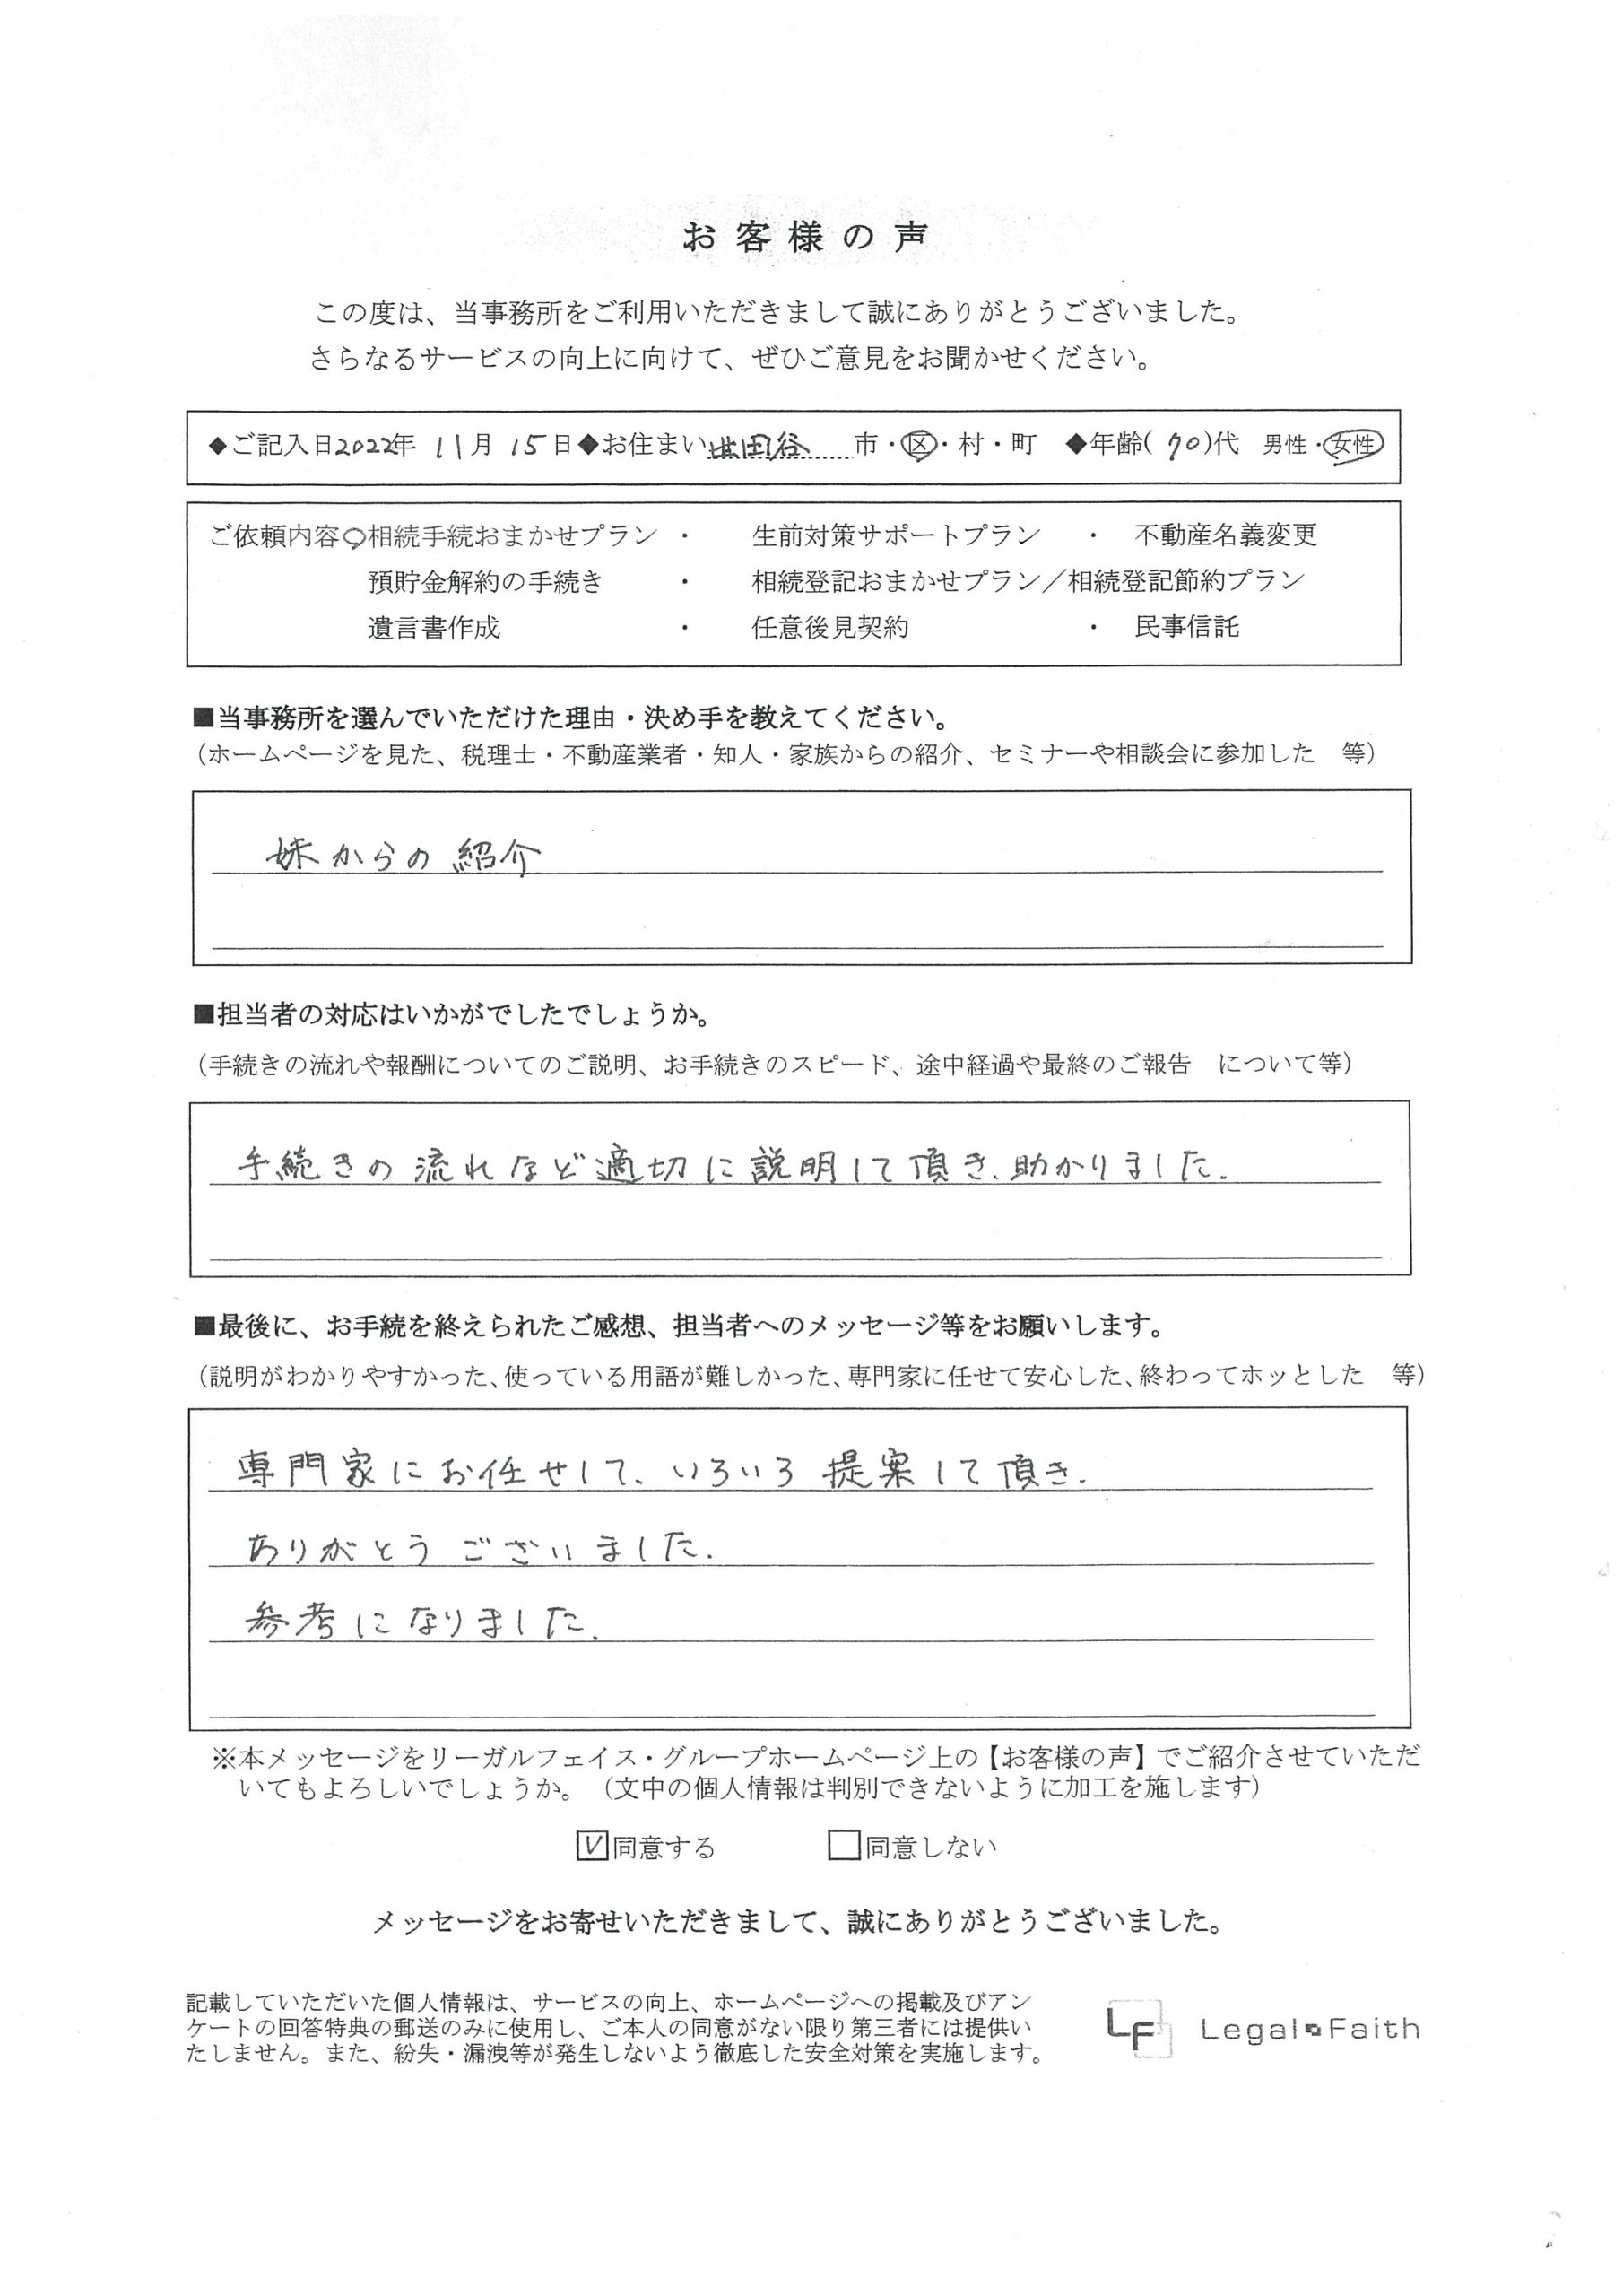 お客様の声
この度は、当事務所をご利用いただきまして誠にありがとうございました。
さらなるサービスの向上に向けて、ぜひご意見をお聞かせください。
◆ご記入日2022年 11月 15日◆お住まい世田谷 市・区・村・町 ◆年齢( 70)代 男性・女性
ご依頼内容○相続手続おまかせプラン ・ 生前対策サポートプラン ・ 不動産名義変更
預貯金解約の手続き ・ 相続登記おまかせプラン／相続登記節約プラン
遺言書作成 ・ 任意後見契約 ・ 民事信託
■当事務所を選んでいただけた理由・決め手を教えてください。
（ホームページを見た、税理士・不動産業者・知人・家族からの紹介、セミナーや相談会に参加した 等）
妹からの紹介
■担当者の対応はいかがでしたでしょうか。
（手続きの流れや報酬についてのご説明、お手続きのスピード、途中経過や最終のご報告 について等）
手続きの流れなど適切に説明して頂き、助かりました.
■最後に、お手続を終えられたご感想、担当者へのメッセージ等をお願いします。
（説明がわかりやすかった、使っている用語が難しかった、専門家に任せて安心した、終わってホッとした 等）
専門家にお任せして、いろいろ提案して頂き.
ありがとうございました.
参考になりました.
※本メッセージをリーガルフェイス・グループホームページ上の【お客様の声】でご紹介させていただ
いてもよろしいでしょうか。（文中の個人情報は判別できないように加工を施します）
☑同意する □同意しない
メッセージをお寄せいただきまして、誠にありがとうございました。
記載していただいた個人情報は、サービスの向上、ホームページへの掲載及びアン
ケートの回答特典の郵送のみに使用し、ご本人の同意がない限り第三者には提供い
たしません。また、紛失・漏洩等が発生しないよう徹底した安全対策を実施します。
LF Legal Faith